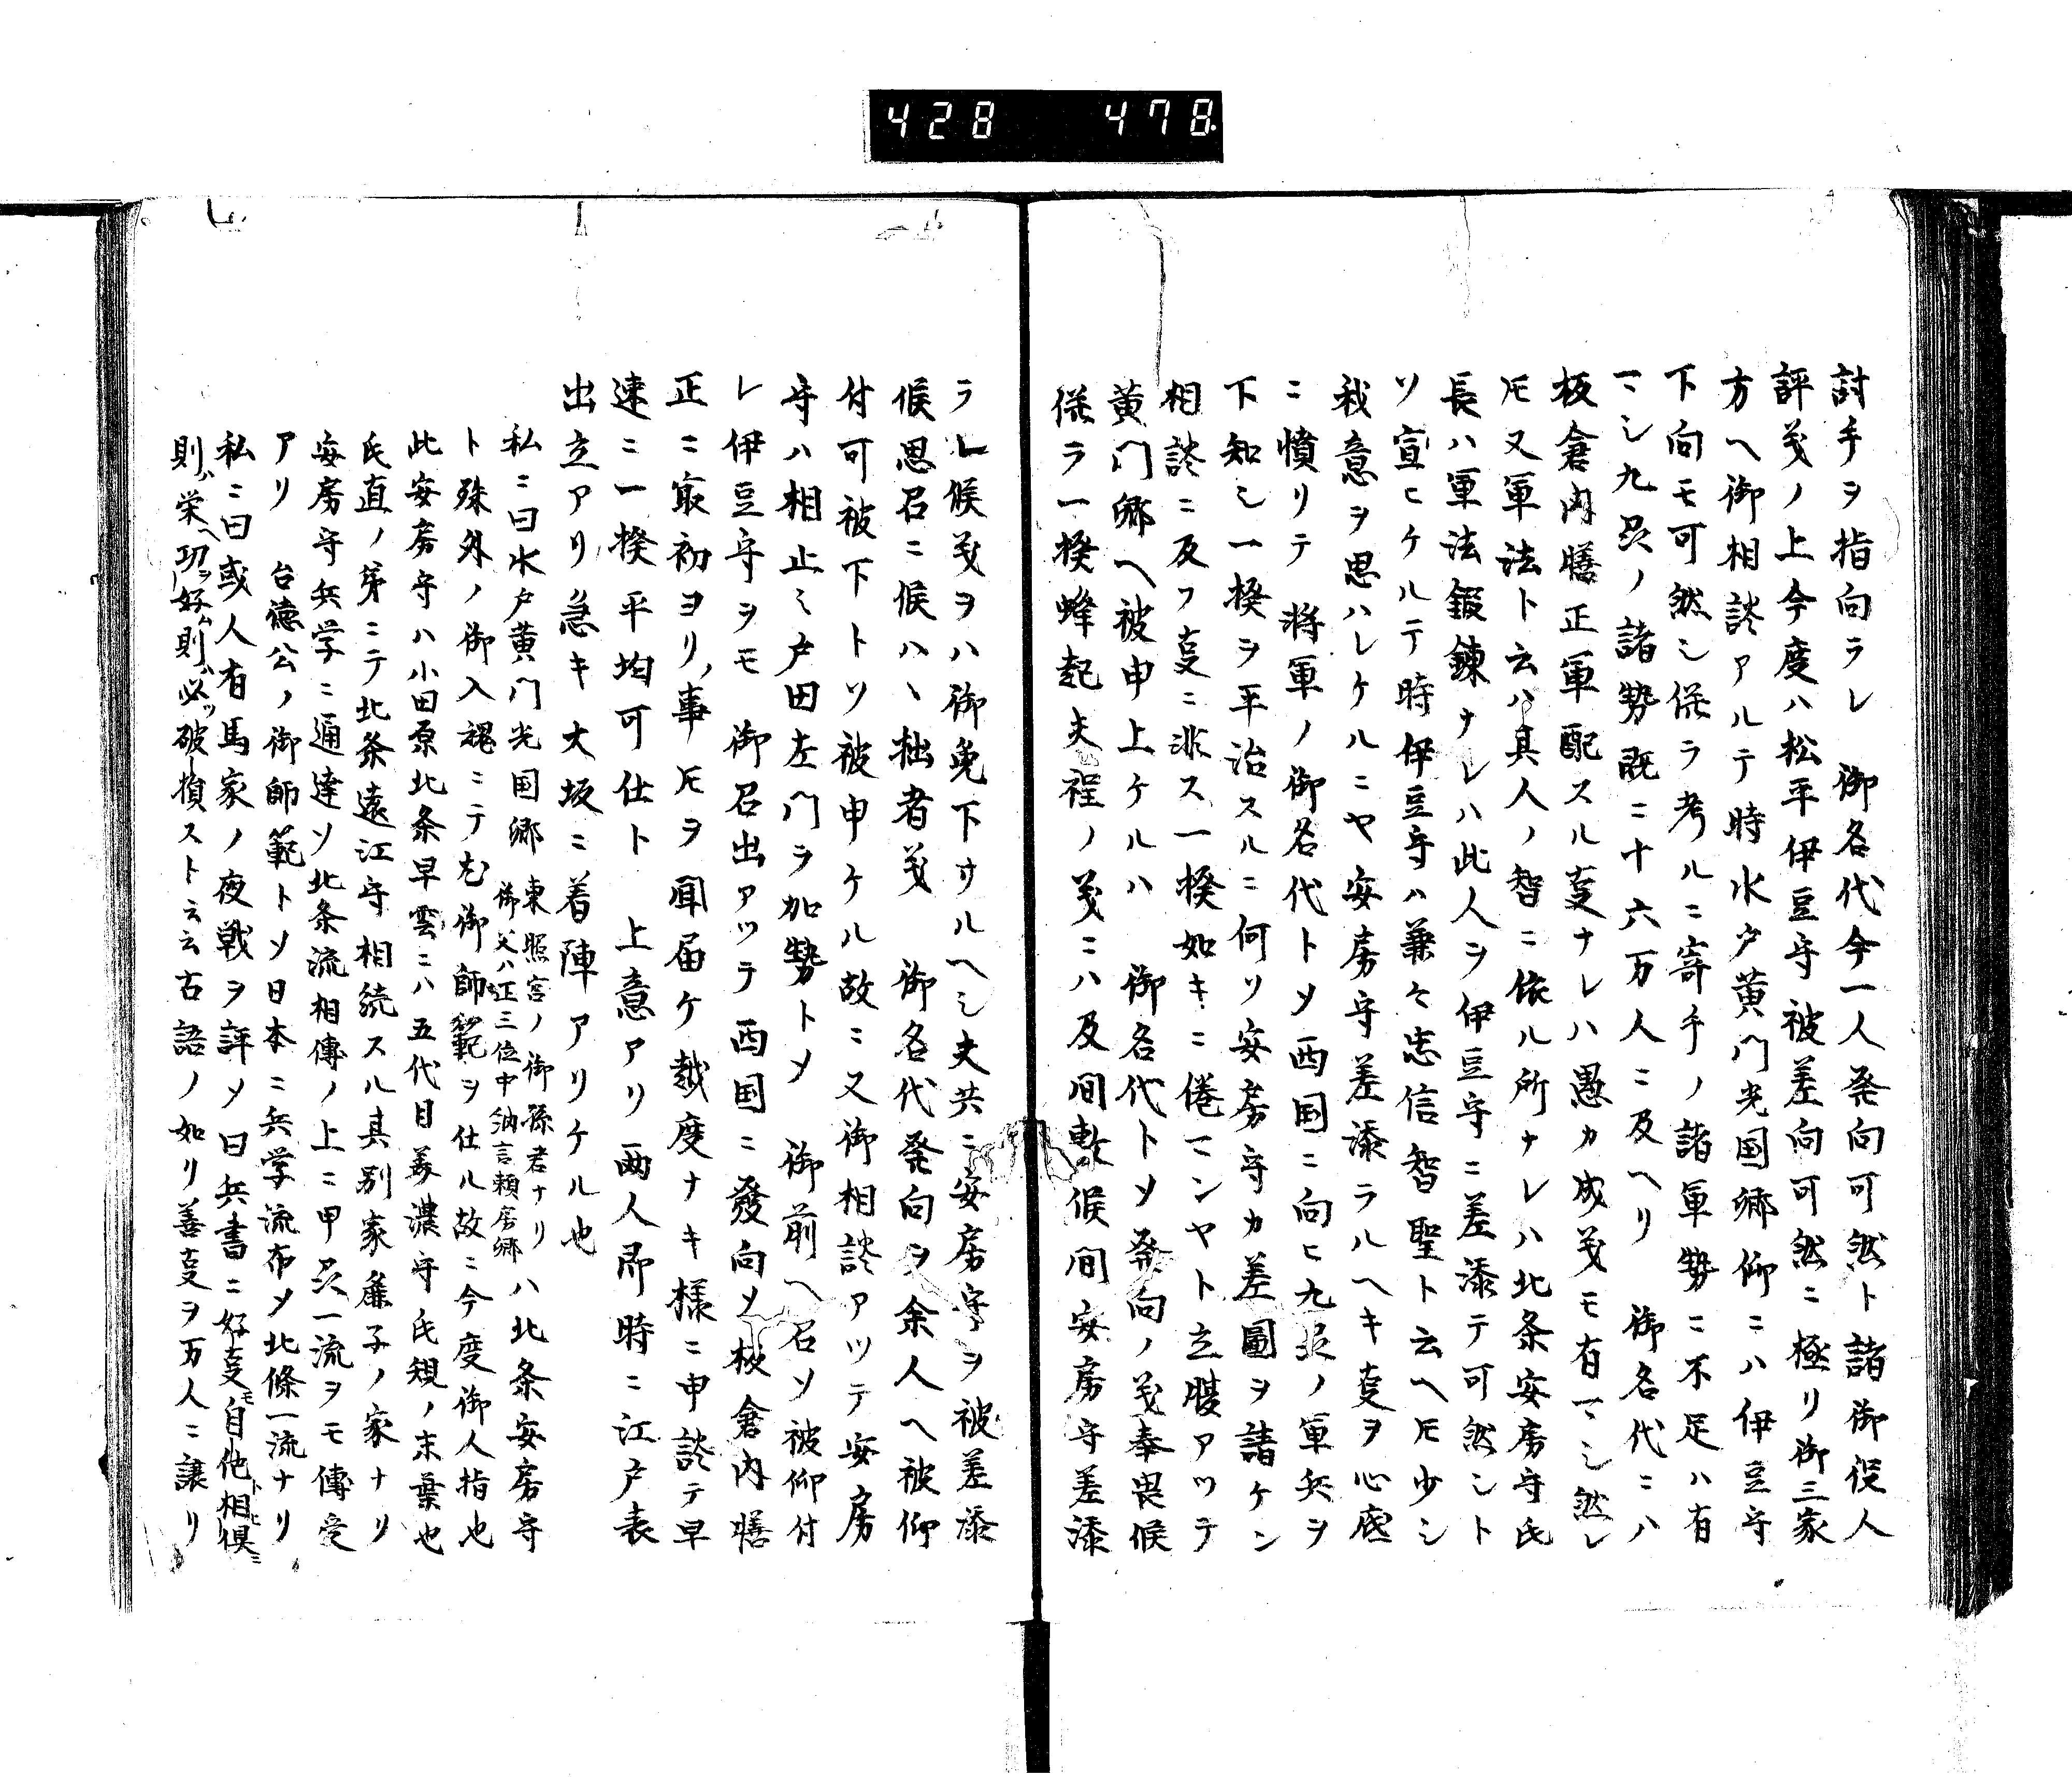 428 478
討手ヲ指向ラレ 御名代今一人発向可然ト諸御役人
評義ノ上今度ハ松平伊豆守被差向可然ニ極リ御三家
方ヘ御相談アルテ時水戸黄門光国郷仰ニハ伊豆守
下向モ可然シ倩ラ考ルニ寄手ノ諸軍勢ニ不足ハ有
マシ九刕ノ諸勢既ニ十六万人ニ及ヘリ 御名代ニハ
板倉内膳正軍配スル叓ナレハ愚カ成義モ有マシ然レ
𪜈又軍法ト云ハ其人ノ智ニ依ル所ナレハ北条安房守氏
長ハ軍法鍛錬ナレハ此人ヲ伊豆守ニ差添テ可然ント
ソ宣ヒケルテ時伊豆守ハ兼々忠信智聖ト云ヘ𪜈少シ
我意ヲ思ハレケルニヤ安房守差添ラルヘキ叓ヲ心底
ニ憤リテ 将軍ノ御名代トメ西国ニ向ヒ九刕ノ軍兵ヲ
下知シ一揆ヲ平治スルニ何ソ安房守カ差圖ヲ請ケン
相談ニ及フ叓ニ非ス一揆如キニ倦マンヤト立腹アツテ
黄門郷ヘ被申上ケルハ 御名代トメ発向ノ義奉畏候
倩ラ一揆蜂起夫程ノ義ニハ及間敷候間安房守差添
ラレ候義ヲハ御免下サルヘシ夫共ニ安房守ヲ被差添
候思召ニ候ハヽ拙者義 御名代発向ヲ余人ヘ被仰
付可被下トソ被申ケル故ニ又御相談アツテ安房
守ハ相止ミ戸田左門ヲ加勢トメ 御前ヘ召ソ被仰付
レ伊豆守ヲモ 御召出アツテ西国ニ發向メ板倉内膳
正ニ最初ヨリノ事𪜈ヲ聞届ケ越度ナキ様ニ申談テ早
速ニ一揆平均可仕ト 上意アリ両人即時ニ江戸表
出立アリ急キ大坂ニ着陣アリケル也
私ニ曰水戸黄門光国郷 東照宮ノ御孫君ナリ 御父ハ正三位中納言頼房郷 ハ北条安房守
ト殊外ノ御入魂ニテ尤御師範ヲ仕ル故ニ今度御人指也
此安房守ハ小田原北条早雲ニハ五代目美濃守氏規ノ末葉也
氏直ノ弟ニテ北条遠江守相続スル其別家庶子ノ家ナリ
安房守兵学ニ通達ソ北条流相傳ノ上ニ甲刕一流ヲモ傳受
アリ 台德公ノ御師範トメ日本ニ兵学流布メ北條一流ナリ
私ニ曰或人有馬家ノ夜戦ヲ評メ曰兵書ニ好叓モ自他ト相ヒ倶ニ
則ハ栄ヘ功ヲ好ム則ハ必ッ破損スト云云古語ノ如リ善叓ヲ万人ニ譲リ